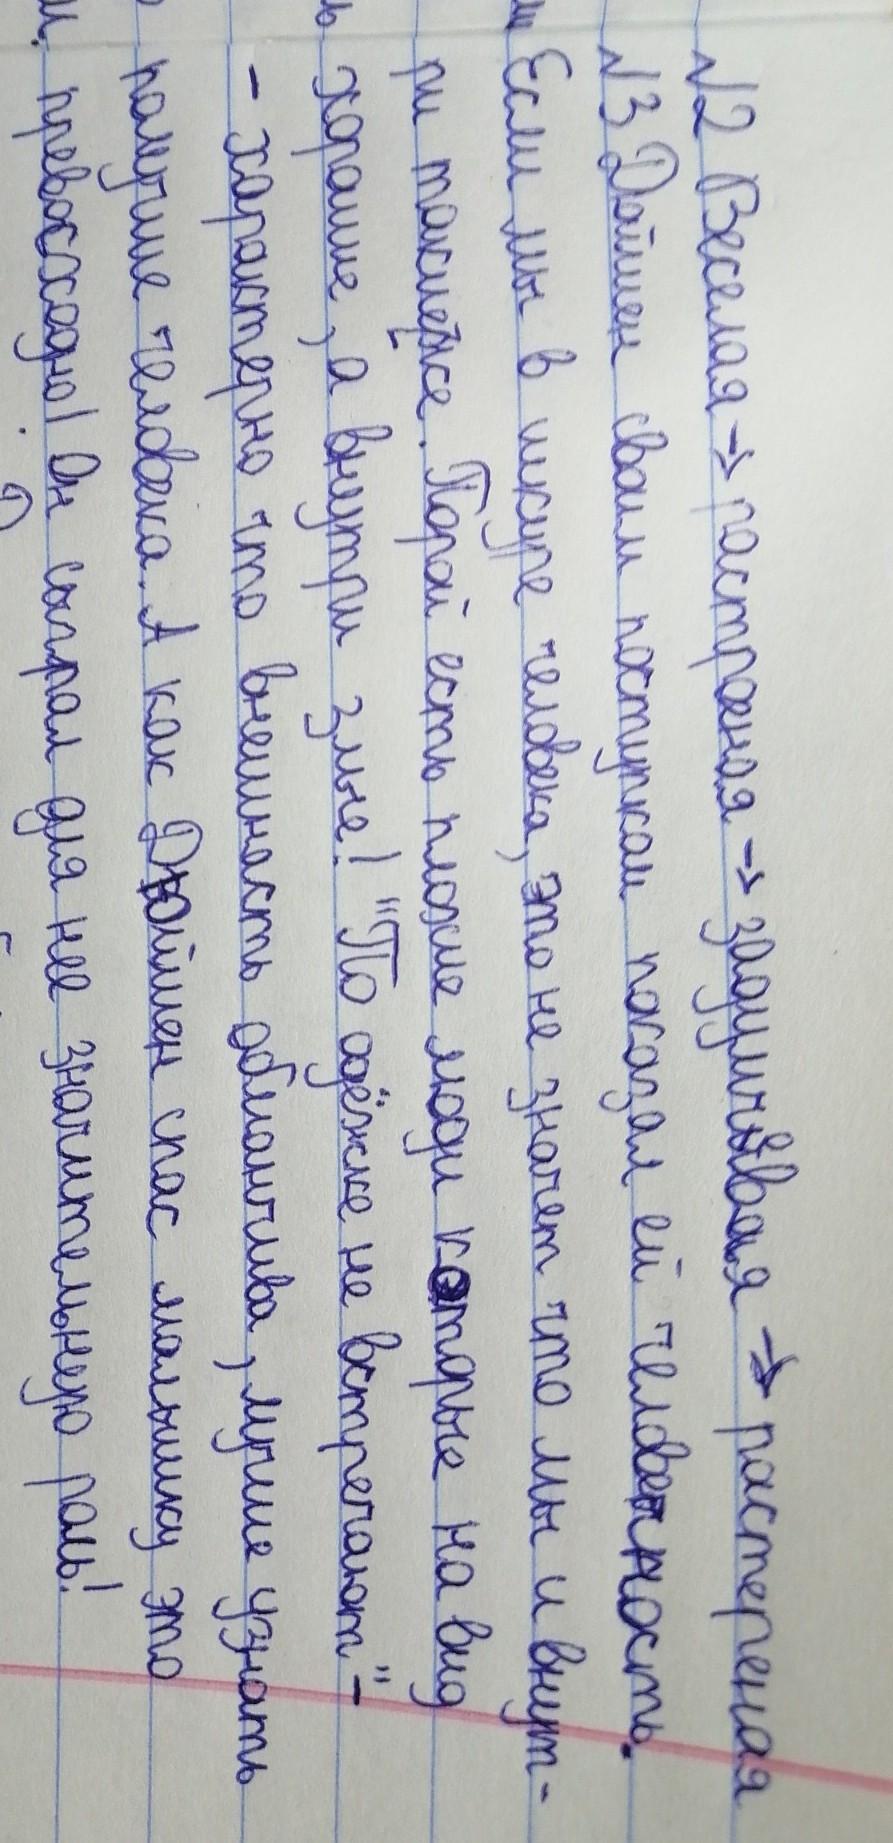 №2 Веселая → растроеная → задумчивая → растереная
№3 Дэймен своим поступком показал ей человечность.
Если мы в шкуре человека, это не значет что мы и внут-
ри такиеже. Порой есть плохие люди которые на вид
хорошие, а внутри злые! "По одёжке не встречают" -
- характерно что внешность обманчива, лучше узнать
получше человека. А как Дэймен спас малышку это
превосходно! Он сыграл для нее значительную роль!